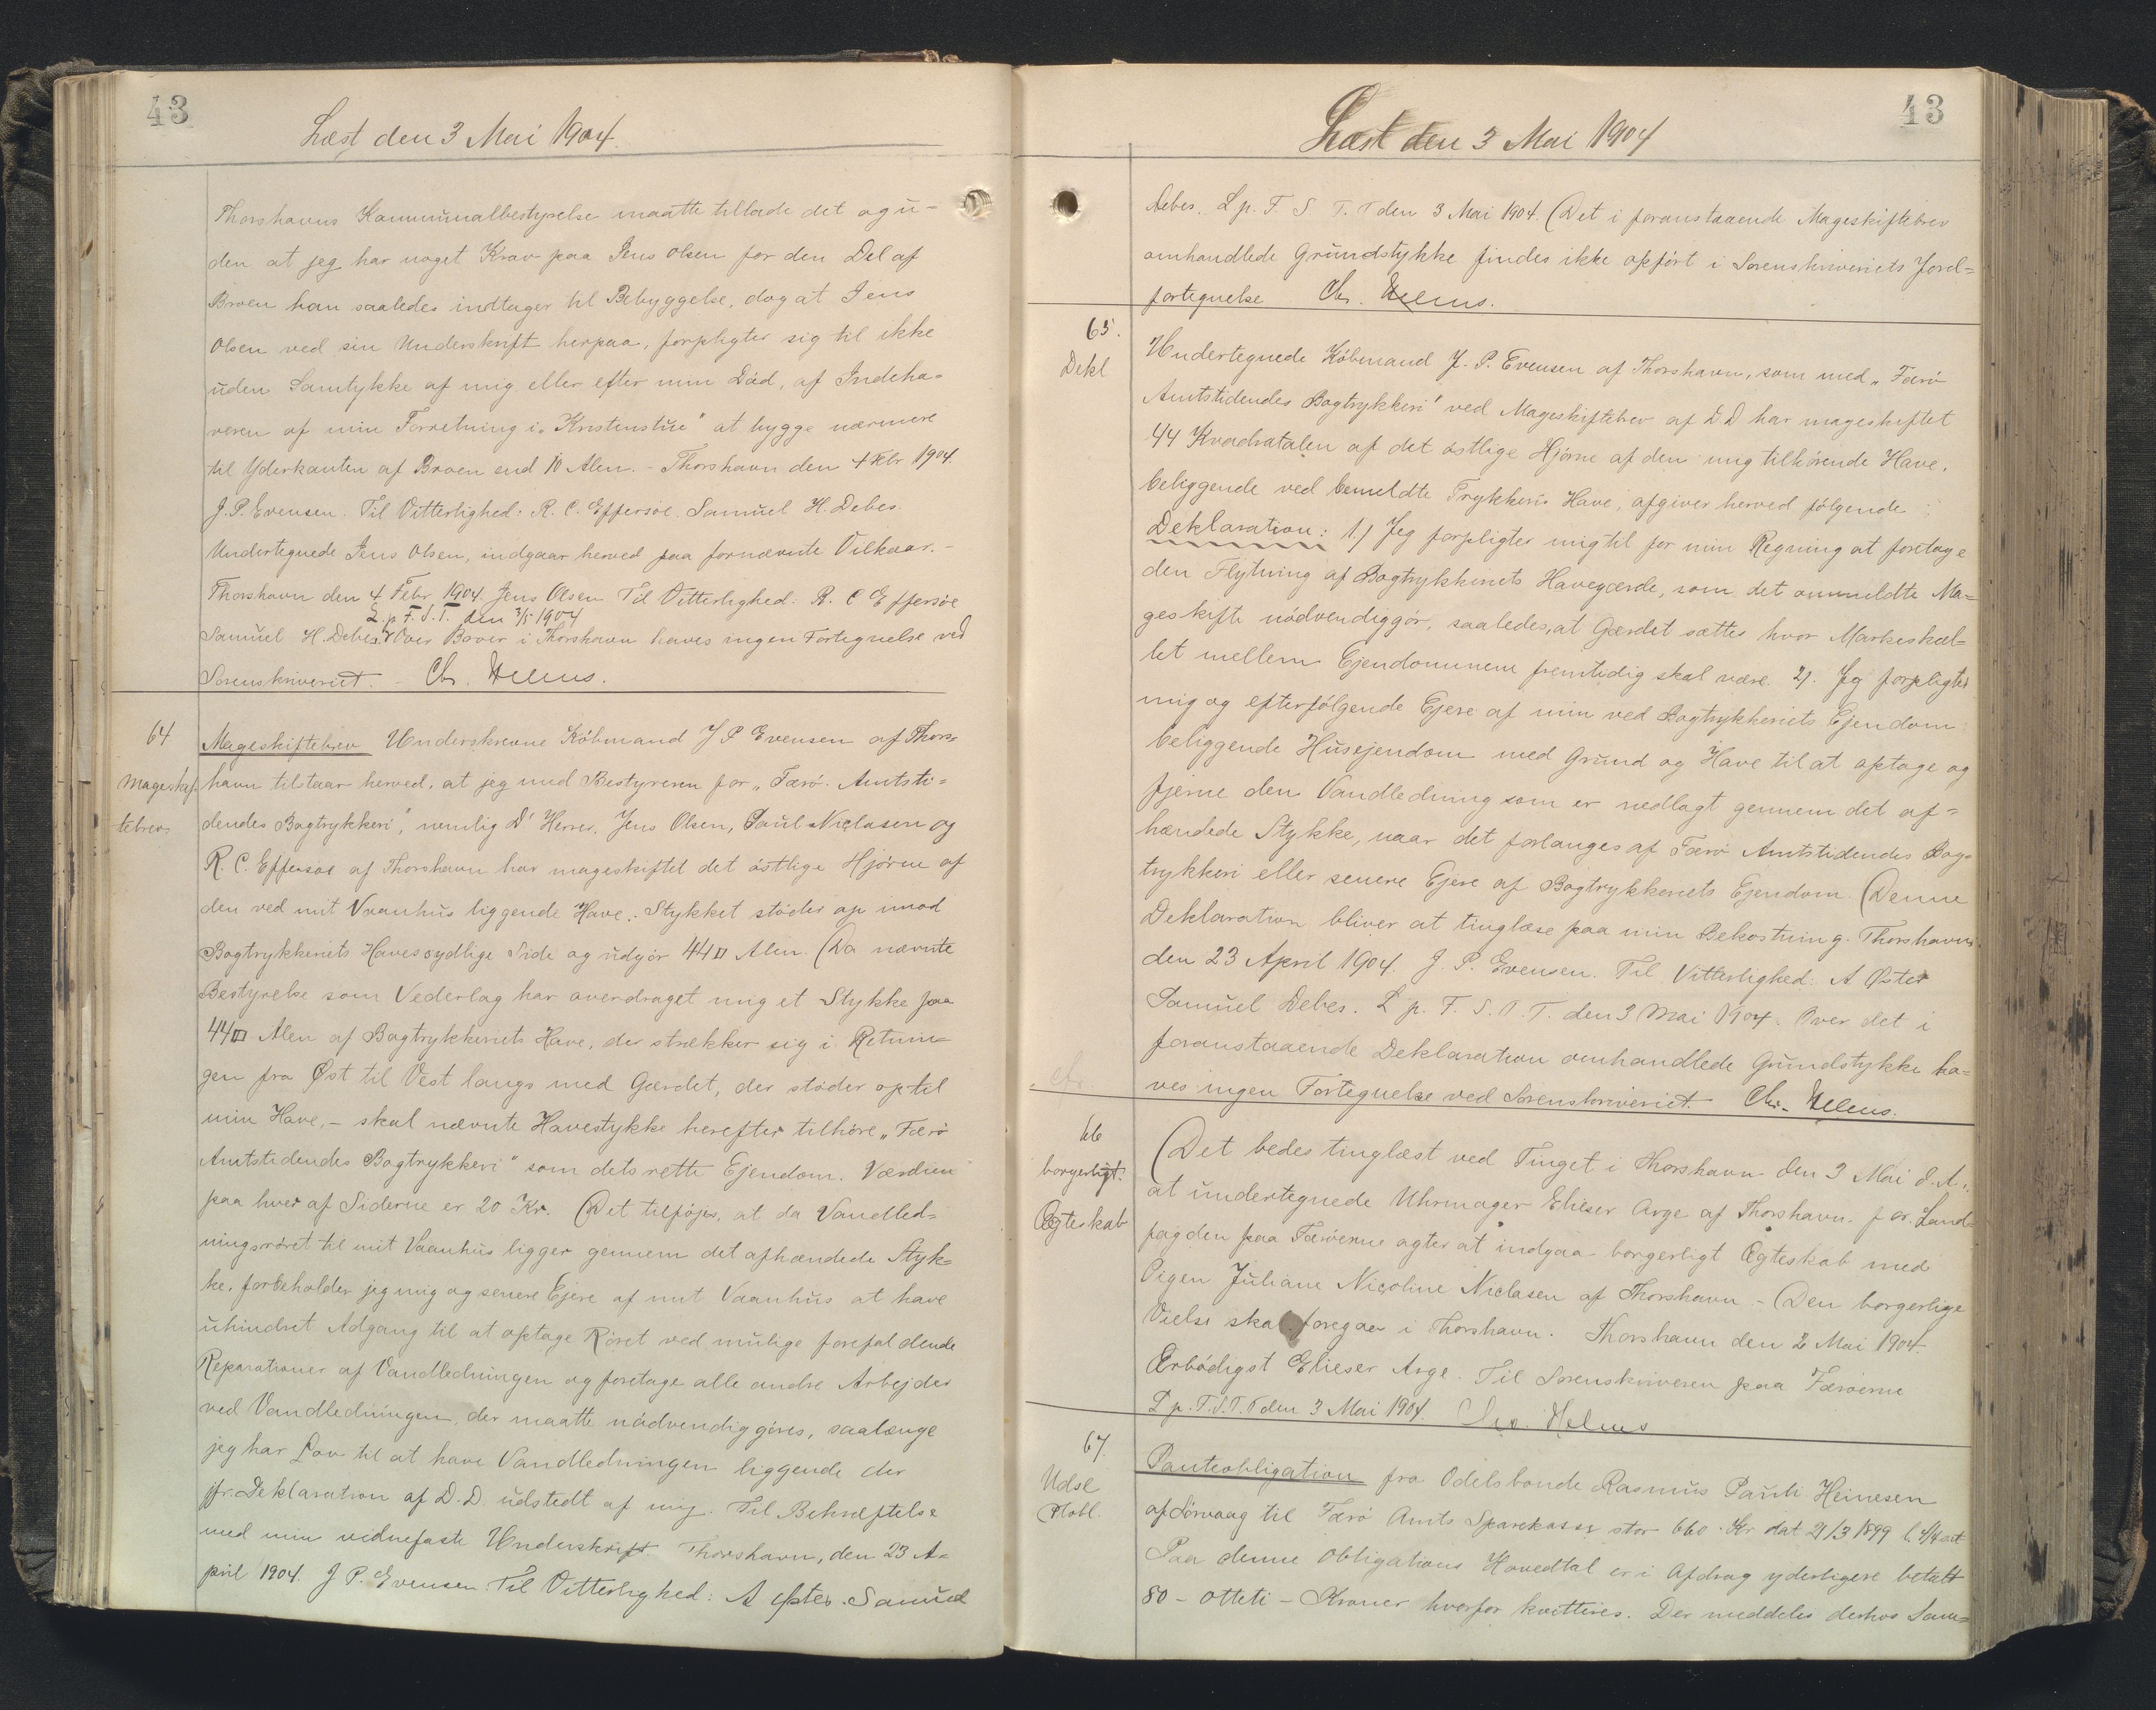 43
Læst den 3 Mai 1904.
Thorshavns Kommunalbestyrelse maatte tillade det og u-
den at jeg har noget Krav paa Jens Olsen for den Del af
Broen han saaledes indtager til Bebyggelse, dog at Jens
Olsen ved sin Underskrift herpaa, forpligter sig til ikke
uden Samtykke af mig eller efter min Död, af Indeha-
veren af min Forretning i "Kristinstue" at bygge nærmere
til Yderkanten af Broen end 10 Alen. - Thorshavn den 4 Febr 1904.
J. P. Evensen. Til Vitterlighed: R. C. Effersöe. Samuel H. Debes.
Undertegnede Jens Olsen, indgaar herved paa fornævnte Vilkaar. -
Thorshavn den 4 Febr 1904. Jens Olsen Til Vitterlighed: R. C Effersöe
L. p. F. S. T. den 3/5 1904
Samuel H. Debes. Over Bover i Thorshavn haves ingen Fortegnelse ved
Sorenskriveriet. - Chr. Helms.
64
Mageskif-
tebrev
Mageskiftebrev Underskrevne Köbmand J P Evensen af Thors-
havn tilstaar herved, at jeg med Bestyreren for "Færö Amtsti-
dendes Bogtrykkeri", nemlig D' Herrer, Jens Olsen, Poul Niclasen og
R. C. Effersöe af Thorshavn har mageskiftet det östlige Hjörne af
den ved mit Vaanhus liggende Have: Stykket stöder op imod
Bogtrykkeriets Haves sydlige Side og udgör 44 □ Alen. (Da nævnte
Bestyrelse som Vederlag har overdraget mig et Stykke paa
44 □ Alen af Bogtrykkeriets Have, der strækker sig i Retnin-
gen fra Øst til Vest langs med Gærdet, der stöder op til
min Have, - skal nævnte Havestykke herefter tilhöre "Færö
Amtstidendes Bogtrykkeri" som dets rette Ejendom. Værdien
paa hver af Siderne er 20 Kr. (Det tilföjes, at da Vandled-
ningsröret til mit Vaanhus ligger gennem det afhændede Styk-
ke, forbeholder jeg mig og senere Ejere af mit Vaanhus at have
uhindret Adgang til at optage Röret ved mulige forefaldende
Reparationer af Vandledningen og foretage alle andre Arbejder
ved Vandledningen, der maatte nödvendiggöres, saalænge
jeg har Lov til at have Vandledningen liggende der
jfr. Deklaration af D. D. udstedt af mig. Til Bekræftelse
med min vidnefaste Underskrift Thorshavn, den 23 A-
pril 1904. J P. Evensen Til Vitterlighed: A Øster. Samuel
43
Læst den 3 Mai 1904
Debes. L p. F. S T. T den 3 Mai 1904. (Det i foranstaaende Mageskiftebrev
omhandlede Grundstykke findes ikke opfört i Sorenskriveriets Jord-
fortegnelse Chr. Helms.
65.
Dekl
Undertegnede Köbmand J. P. Evensen af Thorshavn, som med "Færö
Amtstidendes Bogtrykkeri" ved Mageskiftebrev af D D har mageskiftet
44 Kvadratalen af det östlige Hjörne af den mig tilhörende Have,
beliggende ved bemeldte Trykkeris Have, afgiver herved fölgende
Deklaration: 1) Jeg forpligter mig til for min Regning at foretage
den Flytning af Bogtrykkeriets Havegærde, som det ommeldte Ma-
geskifte nödvendiggör, saaledes, at Gærdet sættes hvor Markeskæl-
let mellem Ejendommene fremtidig skal være. 2). Jeg forpligter
mig og efterfölgende Ejere af min ved Bogtrykkeriets Ejendom
beliggende Husejendom med Grund og Have til at optage og
fjerne den Vandledning som er nedlagt gennem det af-
hændede Stykke, naar det forlanges af Færö Amtstidendes Bog-
trykkeri eller senere Ejere af Bogtrykkeriets Ejendom. (Denne
Deklaration bliver at tinglæse paa min Bekostning. Thorshavn
den 23 April 1904. J. P. Evensen. Til Vitterlighed: A Øster
Samuel Debes. L p. F. S. T. T. den 3 Mai 1904. Over det i
foranstaaende Deklaration omhandlede Grundstykke ha-
ves ingen Fortegnelse ved Sorenskriveriet. Chr. Helms.
66
borgerligt.
Ægteskab
(Det bedes tinglæst ved Tinget i Thorshavn den 3 Mai d. A.,
at undertegnede Uhrmager Elieser Arge af Thorshavn. for. Land-
fogden paa Færöerne agter at indgaa borgerligt Ægteskab med
Pigen Juliane Nicoline Niclasen af Thorshavn. - (Den borgerlige
Vielse skal foregaa i Thorshavn. Thorshavn den 2 Mai 1904.
Ærbödigst Elieser Arge. Til Sorenskriveren paa Færöerne
L p. F. S. T. T den 3 Mai 1904. Chr. Helms
67.
Udsl
Pobl.
Panteobligation fra Odelsbonde Rasmus Pauli Heinesen
af Sörvaag til Færö Amts Sparekasse stor 660. Kr dat 21/3 1899
Paa denne Obligations Hovedtal er i Afdrag yderligere betalt
80 - otteti - Kroner hvorfor kvitteres. Der meddeles derhos Sam-